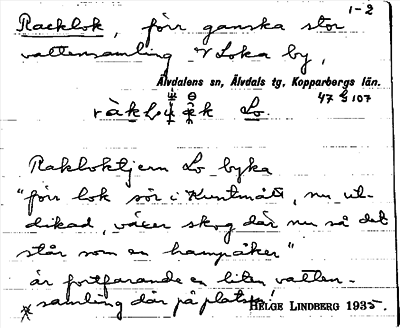 1-2
Racklok, förr ganska stor
vattensamling v Loka by,
Älvdalens sn, Älvdals tg, Kopparbergs län.
47 G 107
Lo.
Rakloktjern Lo_byka
"förr lok sör i Kuntmått, nu ut-
dikad, växer skog där nu så det
står som en hampåker"
är fortfarande en liten vatten-
samling där på platsen!
HELGE LINDBERG 1935.